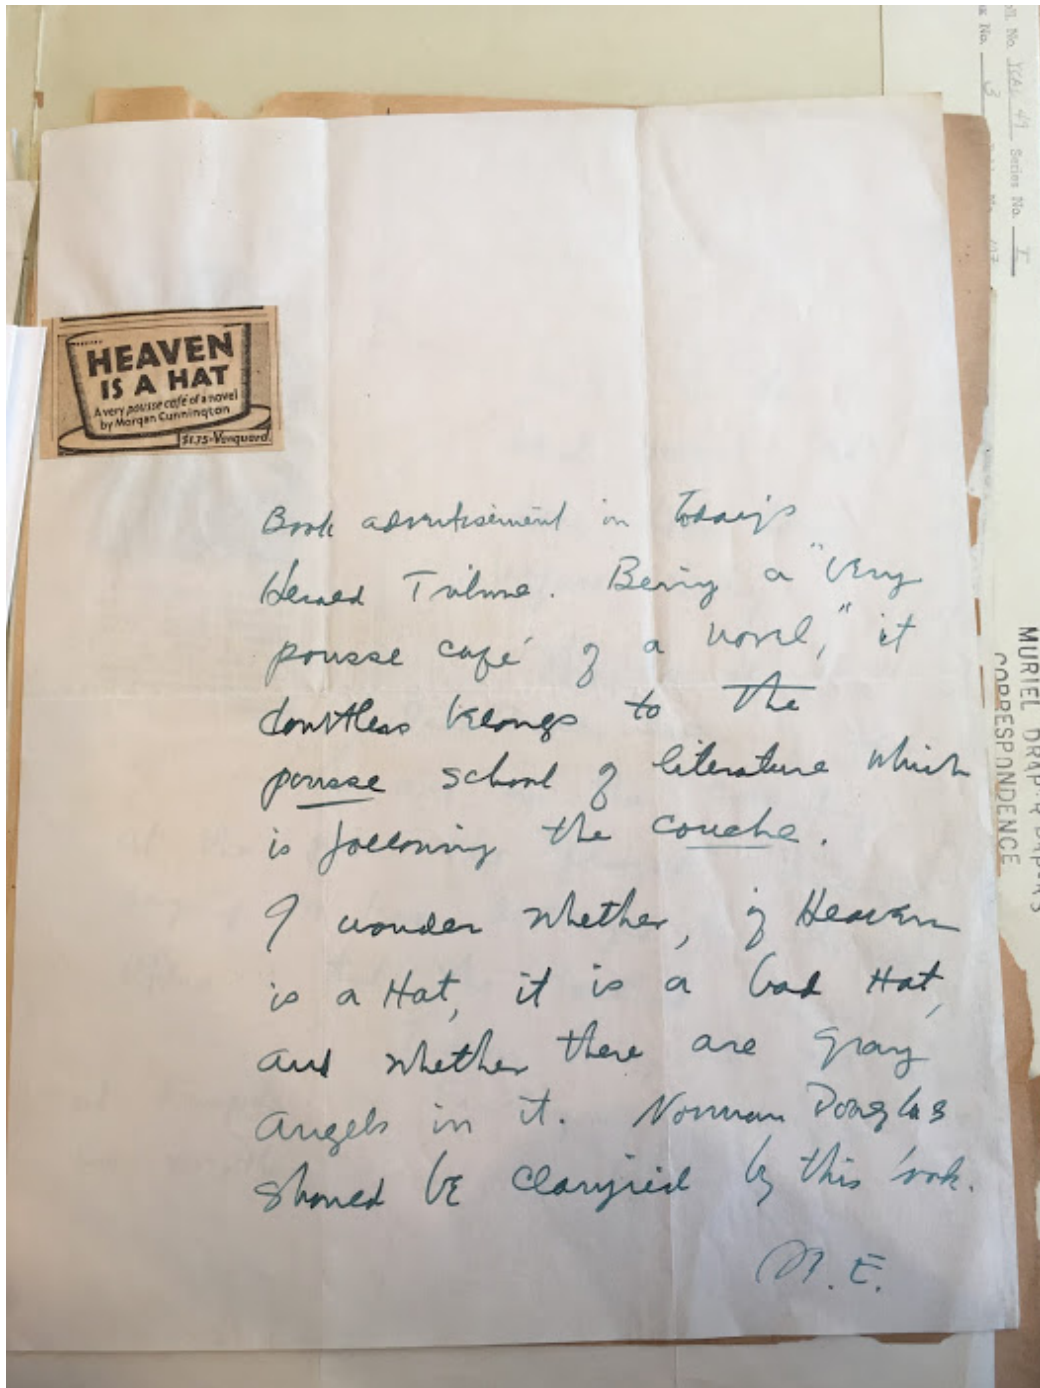 Coll. No. YCAL 49 Series No. I
Box No. 3
HEAVEN
IS A HAT
A very pousse café of a novel
by Morgan Cunnington
$1.75-Vanguard
Book advertisement in today's
Herald Tribune. Being a "very
pousse café of a novel," it
doubtless belongs to the
pousse school of literature which
is following the couche.
I wonder whether, if Heaven
is a Hat, it is a bad Hat,
and whether there are gray
angels in it. Norman Douglas
should be clarified by this book.
M.E.
MURIEL DRAPER PAPERS
CORRESPONDENCE